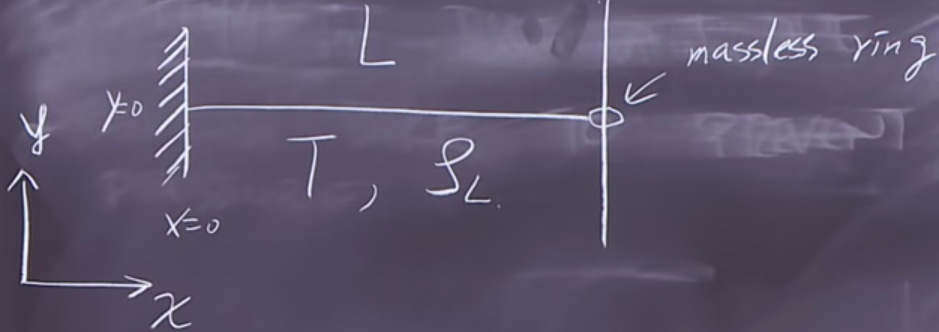 L
massless ring
y=0
y
T, ρL
x=0
x